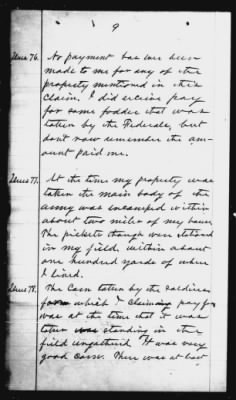 9
Item 76. No payment has ever been
made to me for any of the
property mentioned in this
claim. I did receive pay
for some fodder that was
taken by the Federals, but
don't now remember the am-
ount paid me.
Item 77. At the time my property was
taken the main body of the
army was encamped within
about two miles of my house
The pickets change over station
in my field, within about
one hundred yards of where
I lived.
Item 78. The Corn taken by the soldiers
for which I claiming pay for
was at the time that it was
taken was standing in the
field ungathered It was very
good corn. There was at least